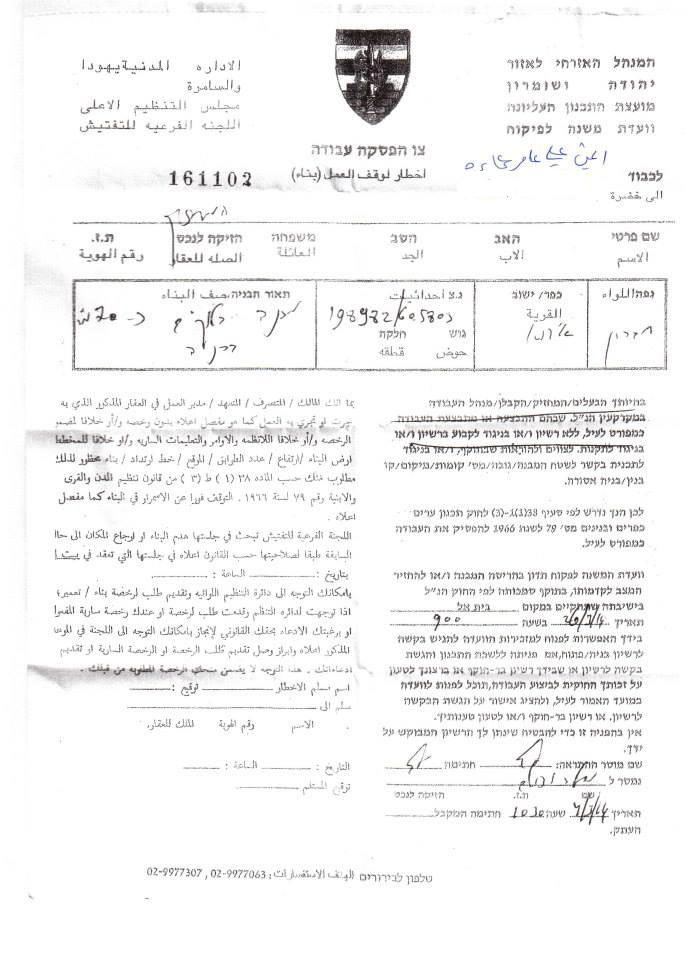 המנהל האזרחי לאזור
יהודה ושומרון
מועצת התכנון העליונה
וועדת משנה לפיקוח
الاداره المدنية يهودا
والسامرة
مجلس التنظيم الاعلى
اللجنه الفرعيه للتفتيش
צו הפסקה עבודה
اخطار لوقف العمل (بناء)
161102
לכבוד
الى حضرة
שם פרטי האב הסב משפחה הזיקה לנכס ת.ז.
الاسم الاب الجد العائلة الصله للعقار رقم الهوية
נפה اللواء כפר/ ישוב נ.צ احداثيات תאור הבניה وصف البناء
القرية
גוש חלקה
حوض قطعه
חברון
198982/605803
בהיותך הבעלים/המחזיק/הקבלן/מנהל העבודה
במקרקעין הנ"ל, שבהם התבצעה או מתבצעת העבודה
כמפורט לעיל, ללא רשיון ו/או בניגוד לקבוע ברשיון ו/או
בניגוד לתקנות, לצווים ולהוראות שבתוקף, ו/או בניגוד
לתכנית בקשר לשטח המבנה/גובה/מס' קומות/מיקום/קו
בנין/בניה אסורה.
לכן הנך נדרש לפי סעיף 38(1)ב-(3) לחוק תכנון ערים
כפרים ובנינים מס' 79 לשנת 1966 להפסיק את העבודה
כמפורט לעיל.
וועדת המשנה לפקוח תדון בהריסת המבנה ו/או להחזיר
המצב לקדמותו, בתוקף סמכותה לפי החוק הנ"ל
בישיבתה שתתקיים במקום בית אל
תאריך בשעה 900
בידך האפשרות לפנות למזכירות הוועדה להגיש בקשה
לרשיון בניה/פתוח, אם פניתה ללשכת התכנון והגשת
בקשה לרשיון או שבידך רשיון בר-תוקף או ברצונך לטעון
על זכותך החוקית לביצוע העבודה, תוכל לפנות לוועדה
במועד האמור לעיל, ולהציג אישור על הגשת הבקשה
לרשיון, או רשיון בר-תוקף ו/או לטעון טענותיך.
אין בהפניה זו כדי להבטיח שינתן לך הרשיון המבוקש על
ידך.
שם מוסר ההתראה: חתימה
נמסר ל
שם ת.ז. הזיקה לנכס
תאריך שעה 1030 חתימה המקבל.
העתק.
بما انك المالك / المتصرف / المتعهد / مدير العمل في العقار المذكور الذي به
تجري به العمل كما هو مفصل اعلاه بدون رخصه و/أو خلافا
الرخصه و/أو خلافا للانظمه والاوامر والتعليمات الساريه و/او خلافا للمخطط
البناء /ارتفاع / عدد الطوابق / الموقع / خط ارتداد / بناء محظور لذلك
مطلوب منك حسب الماده ٣٨ (١) ط (٣) من قانون تنظيم المدن والقرى
والابنية رقم ٧٩ لسنة ١٩٦٦ . التوقف فورا عن الاستمرار في البناء كما مفصل
اعلاه .
اللجنه الفرعيه للتفتيش تبحث في جلستها هدم البناء او ارجاع المكان الى حال
السابقة طبقا لصلاحيتها حسب القانون اعلاه في جلستها التي تعقد في
بتاريخ : الساعة :
بامكانك التوجه الى دائرة التنظيم اللوائيه وتقديم طلب لرخصة بناء / تعمير؛
اذا توجهت لدائره التنظيم وقدمت طلب لرخصة او عندك رخصة سارية المفعول
او برغبتك الادعاء بحقك القانوني لإنجاز بامكانك التوجه الى اللجنة في الموعد
المذكور اعلاه وابراز وصل تقديم طلب الرخصة او الرخصة السارية او تقديم
ادعاءاتك . هذا التوجه لا يضمن منحك الرخصة المطلوبه من قبلك .
اسم مسلم الاخطار توقيع :
سلم الى
الاسم رقم الهوية المالك للعقار.
التاريخ : الساعة :
توقيع المستلم
טלפון לבירורים الهاتف الاستفسارات : 02-9977063 , 02-9977307